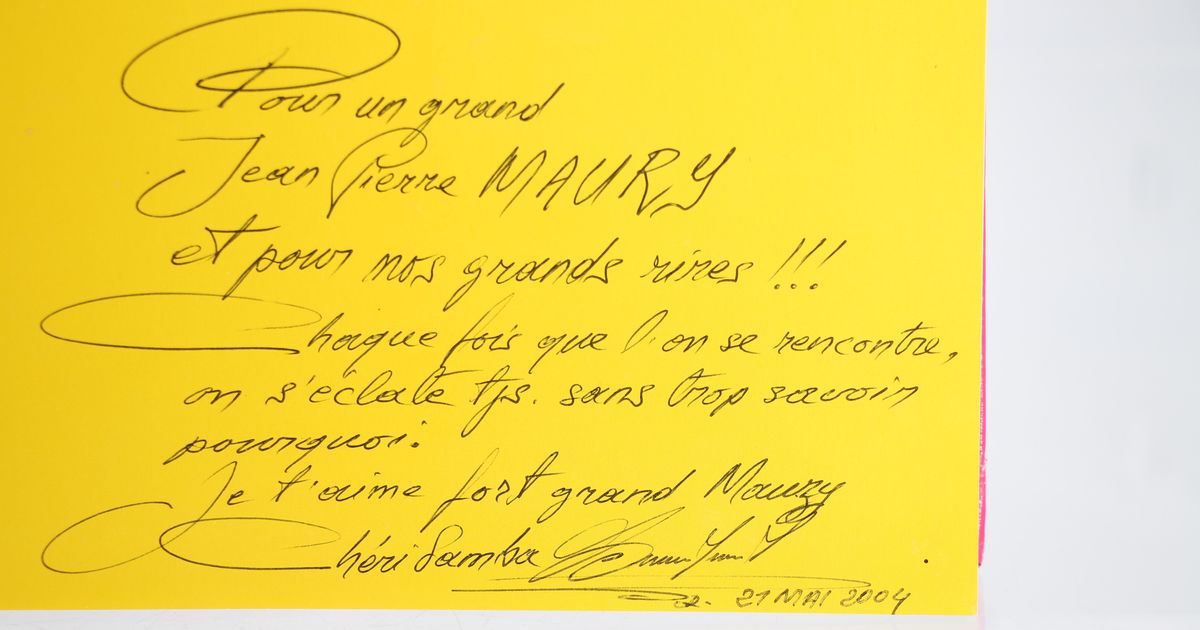 Pour un grand
Jean Pierre MAURY
et pour nos grands rires !!!
Chaque fois que l'on se rencontre,
on s'éclate tjs. sans trop savoir
pourquoi.
Je t'aime fort grand Maury
Chéri Samba
21 MAI 2004